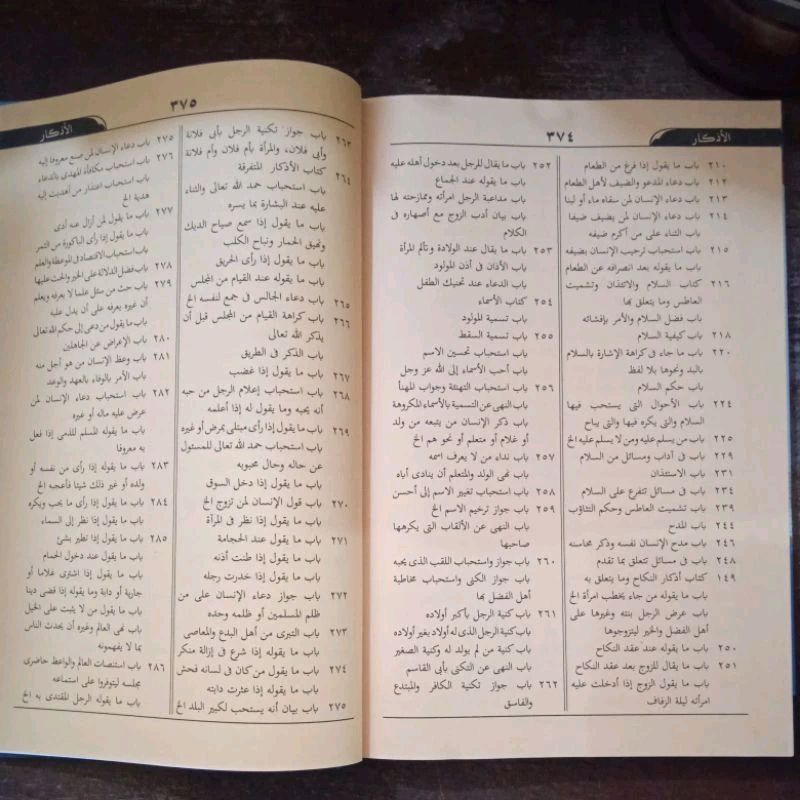 الأذكار
٣٧٤
٢١٠ باب ما يقول إذا فرغ من الطعام
٢١٢ باب دعاء المدعو والضيف لأهل الطعام
٢١٣ باب دعاء الإنسان لمن سقاه ماء أو لبنا
٢١٤ باب دعاء الإنسان لمن يضيف ضيفا
باب الثناء على من أكرم ضيفه
٢١٥ باب استحباب ترحيب الإنسان بضيفه
باب ما يقوله بعد انصرافه عن الطعام
٢١٦ كتاب السلام والاستئذان وتشميت
العاطس وما يتعلق بها
باب فضل السلام والأمر بإفشائه
٢١٨ باب كيفية السلام
٢٢٠ باب ما جاء فى كراهة الإشارة بالسلام
باليد ونحوها بلا لفظ
باب حكم السلام
٢٢٤ باب الأحوال التى يستحب فيها
السلام والتى يكره فيها والتى يباح
٢٢٥ باب من يسلم عليه ومن لا يسلم عليه الخ
٢٢٩ باب فى آداب ومسائل من السلام
٢٣١ باب الاستئذان
٢٣٤ باب فى مسائل تتفرع على السلام
٢٣٩ باب تشميت العاطس وحكم التثاؤب
٢٤٤ باب المدح
٢٤٦ باب مدح الإنسان نفسه وذكر محاسنه
٢٤٨ باب فى مسائل تتعلق بما تقدم
١٤٩ كتاب أذكار النكاح وما يتعلق به
باب ما يقوله من جاء يخطب امرأة الخ
باب عرض الرجل بنته وغيرها على
أهل الفضل والخير ليتزوجوها
٢٥٠ باب ما يقوله عند عقد النكاح
٢٥١ باب ما يقال للزوج بعد عقد النكاح
باب ما يقول الزوج إذا أدخلت عليه
امرأته ليلة الزفاف
٢٥٢ باب ما يقال للرجل بعد دخول أهله عليه
باب ما يقوله عند الجماع
باب مداعبة الرجل امرأته وممازحته لها
باب بيان أدب الزوج مع أصهاره فى
الكلام
٢٥٣ باب ما يقال عند الولادة وتألم المرأة
باب الأذان فى أذن المولود
باب الدعاء عند تحنيك الطفل
٢٥٤ كتاب الأسماء
باب تسمية المولود
٢٥٥ باب تسمية السقط
باب استحباب تحسين الاسم
باب أحب الأسماء إلى الله عز وجل
٢٥٦ باب استحباب التهنئة وجواب المهنأ
باب النهى عن التسمية بالأسماء المكروهة
باب ذكر الإنسان من يتبعه من ولد
أو غلام أو متعلم أو نحو هم الخ
٢٥٧ باب نداء من لا يعرف اسمه
باب نهى الولد والمتعلم أن ينادى أباه
٢٥٨ باب استحباب تغيير الاسم إلى أحسن
٢٥٩ باب جواز ترخيم الاسم الخ
باب النهى عن الألقاب التى يكرهها
صاحبها
٢٦٠ باب جواز واستحباب اللقب الذى يحبه
باب جواز الكنى واستحباب مخاطبة
أهل الفضل بها
٢٦١ باب كنية الرجل بأكبر أولاده
باب كنية الرجل الذى له أولاد بغير أولاده
باب كنية من لم يولد له وكنية الصغير
باب النهى عن التكنى بأبى القاسم
٢٦٢ باب جواز تكنية الكافر والمبتدع
والفاسق
٣٧٥
الأذكار
٢٦٣ باب جواز تكنية الرجل بأبى فلانة
وأبى فلان، والمرأة بأم فلان وأم فلانة
٢٦٤ كتاب الأذكار المتفرقة
باب استحباب حمد الله تعالى والثناء
عليه عند البشارة بما يسره
باب ما يقول إذا سمع صياح الديك
ونهيق الحمار ونباح الكلب
باب ما يقول إذا رأى الحريق
باب ما يقوله عند القيام من المجلس
٢٦٥ باب دعاء الجالس فى جمع لنفسه الخ
٢٦٦ باب كراهة القيام من المجلس قبل أن
يذكر الله تعالى
باب الذكر فى الطريق
٢٦٧ باب ما يقول إذا غضب
٢٦٨ باب استحباب إعلام الرجل من حبه
أنه يحبه وما يقول له إذا أعلمه
٢٦٩ باب ما يقول إذا رأى مبتلى بمرض أو غيره
باب استحباب حمد الله تعالى للمسئول
عن حاله وحال محبوبه
باب ما يقول إذا دخل السوق
٢٧٠ باب قول الإنسان لمن تزوج الخ
باب ما يقول إذا نظر فى المرآة
٢٧١ باب ما يقول عند الحجامة
باب ما يقول إذا طنت أذنه
باب ما يقول إذا خدرت رجله
٢٧٢ باب جواز دعاء الإنسان على من
ظلم المسلمين أو ظلمه وحده
٢٧٣ باب التبرى من أهل البدع والمعاصى
باب ما يقوله إذا شرع فى إزالة منكر
٢٧٤ باب ما يقول من كان فى لسانه فحش
باب ما يقوله إذا عثرت دابته
٢٧٥ باب بيان أنه يستحب لكبير البلد الخ
٢٧٥ باب دعاء الإنسان لمن صنع معروفا إليه
٢٧٦ باب استحباب مكافأة المهدى بالدعاء
باب استحباب اعتذار من أهديت إليه
هدية الخ
٢٧٧ باب ما يقول لمن أزال عنه أذى
باب ما يقول إذا رأى الباكورة من الثمر
باب استحباب الاقتصاد فى الموعظة والعلم
٢٧٨ باب فضل الدلالة على الخير والحث عليها
٢٧٩ باب حث من سئل علما لا يعرفه ويعلم
أن غيره يعرفه على أن يدل عليه
باب ما يقول من دعى إلى حكم الله تعالى
٢٨٠ باب الإعراض عن الجاهلين
٢٨١ باب وعظ الإنسان من هو أجل منه
باب الأمر بالوفاء بالعهد والوعد
٢٨٢ باب استحباب دعاء الإنسان لمن
عرض عليه ماله أو غيره
باب ما يقوله المسلم للذمى إذا فعل
به معروفا
٢٨٣ باب ما يقوله إذا رأى من نفسه أو
ولده أو غير ذلك شيئا فأعجبه الخ
٢٨٤ باب ما يقول إذا رأى ما يحب ويكره
باب ما يقول إذا نظر إلى السماء
٢٨٥ باب ما يقول إذا تطير بشئ
باب ما يقول عند دخول الحمام
باب ما يقول إذا اشترى غلاما أو
جارية أو دابة وما يقوله إذا قضى دينا
باب ما يقول من لا يثبت على الخيل
باب نهى العالم وغيره أن يحدث الناس
بما لا يفهمونه
٢٨٦ باب استنصات العالم والواعظ حاضرى
مجلسه ليتوفروا على استماعه
باب ما يقوله الرجل المقتدى به الخ